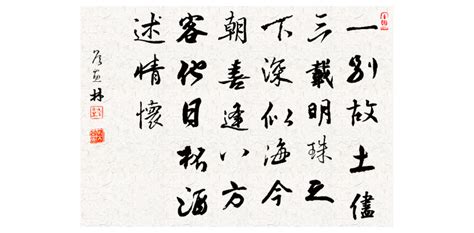 一别故土儘
三載明珠之
下深似海今
朝喜逢八方
客他日酒
述情懷
林